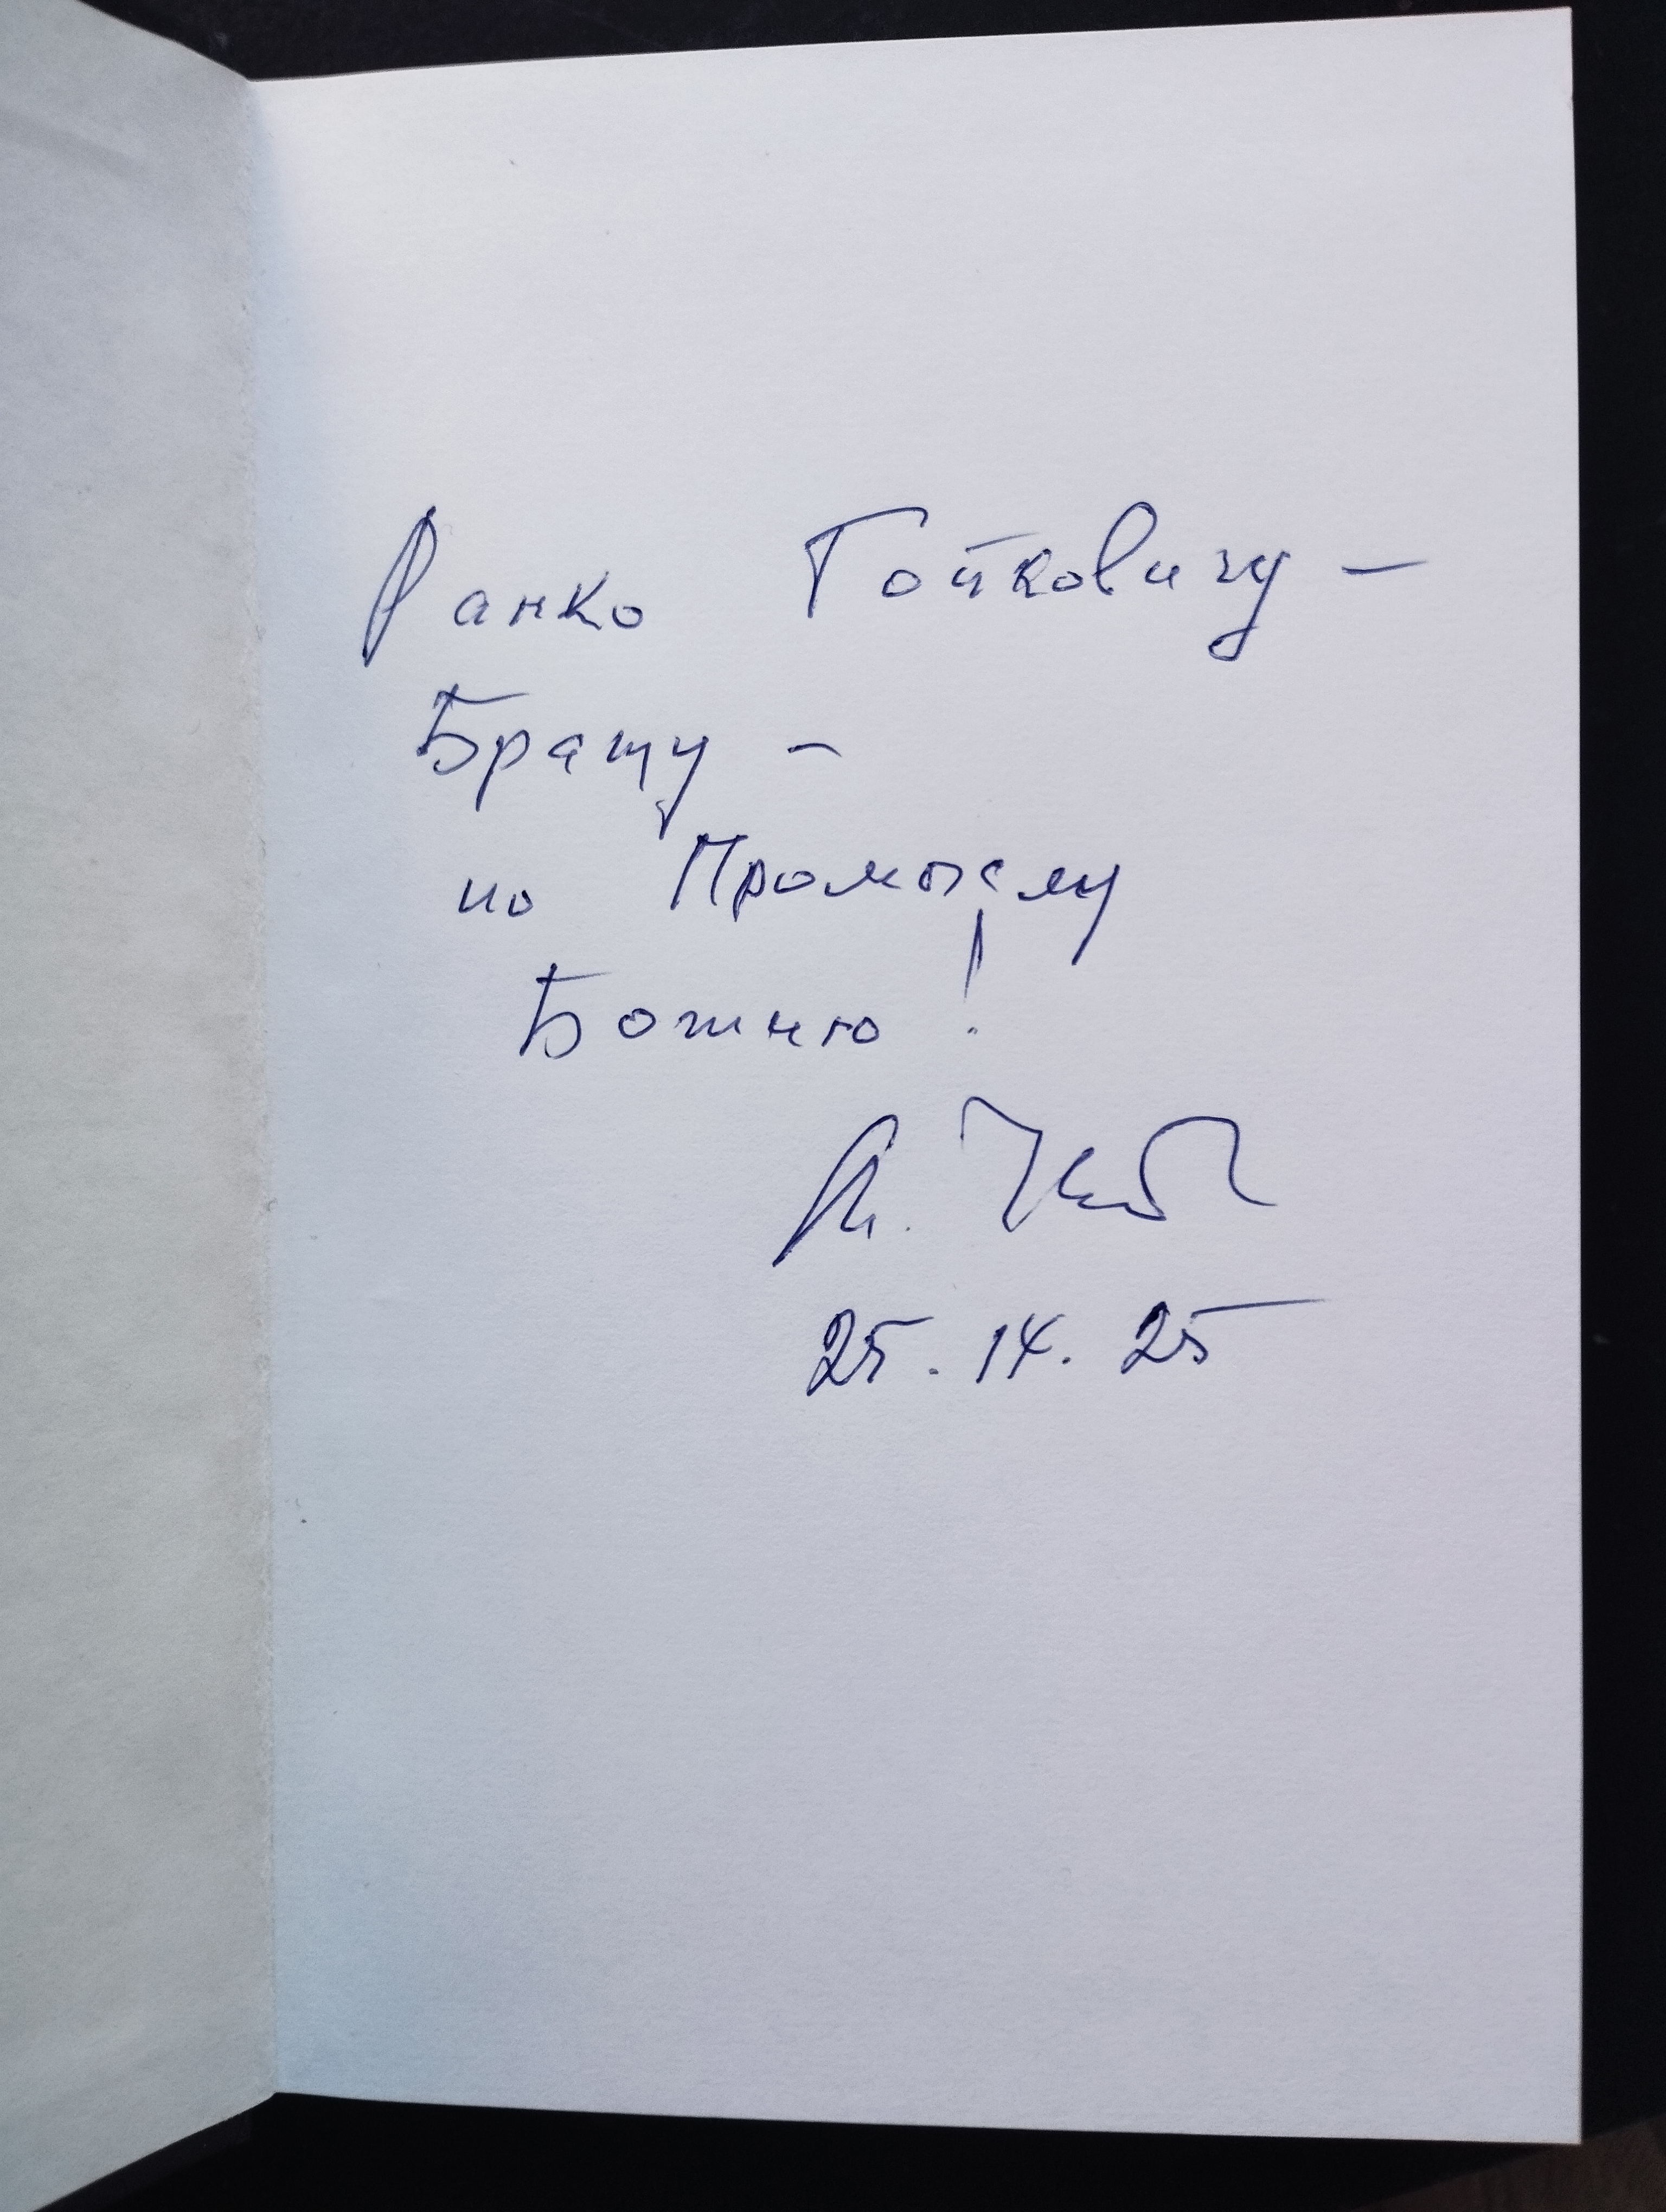 Ранко Гойковичу —
Брату —
по Промыслу
Божию!
25. IX. 25